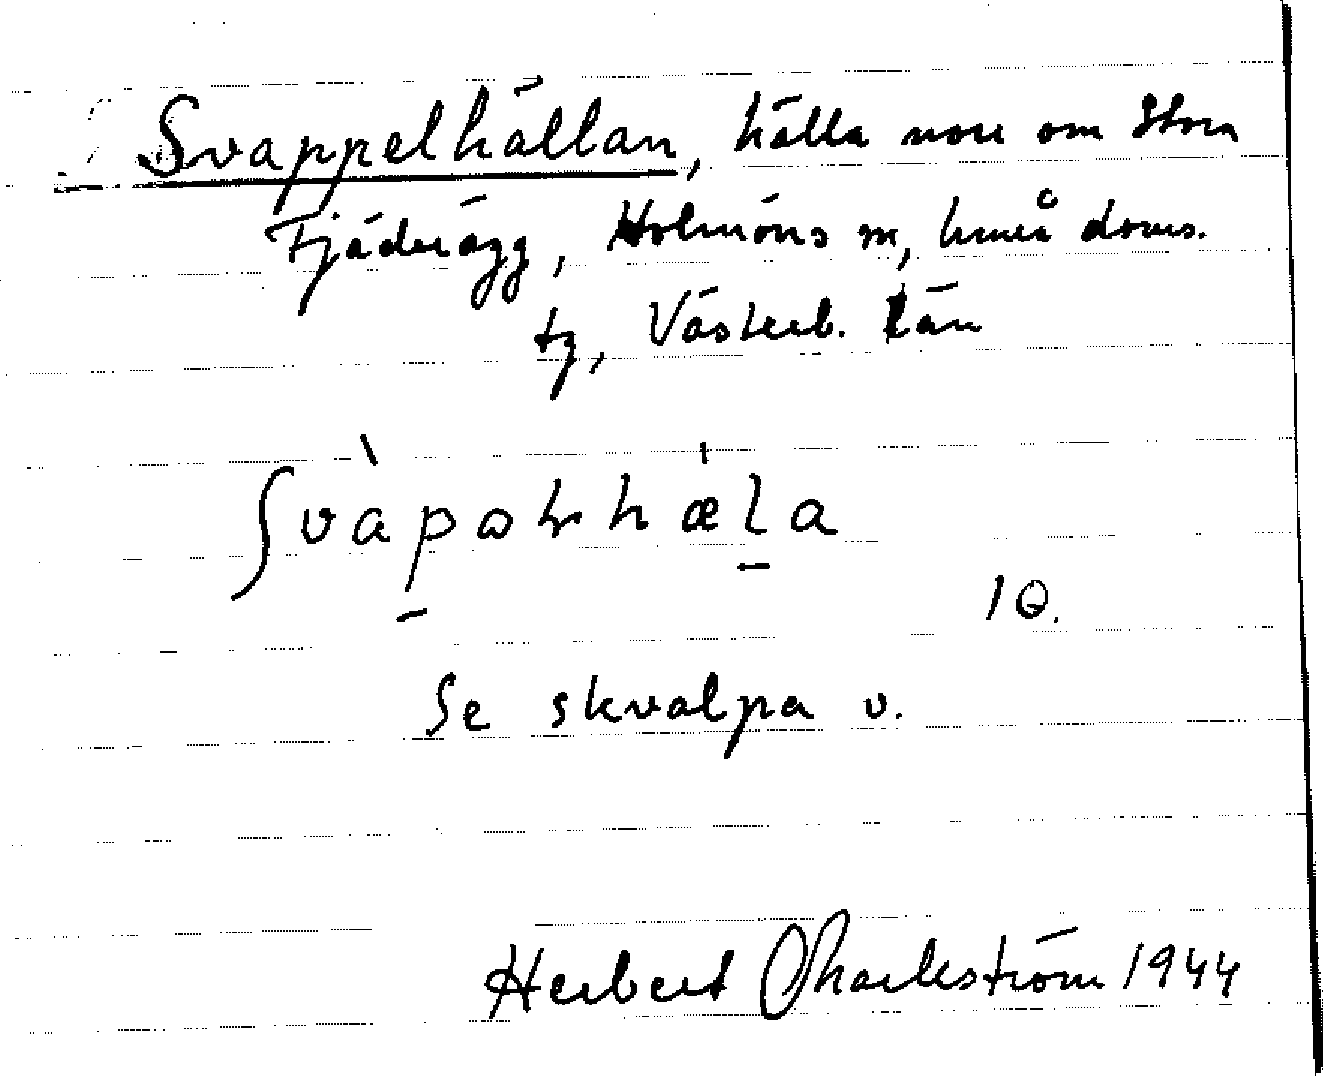 Svappelhällan, hälla norr om Stora
Fjäderägg, Holmöns sn, Umeå doms.
tg, Västerb. län
ʃvàpaɽhæ̍la
10.
Se skvalpa v.
Herbert Markström 1944